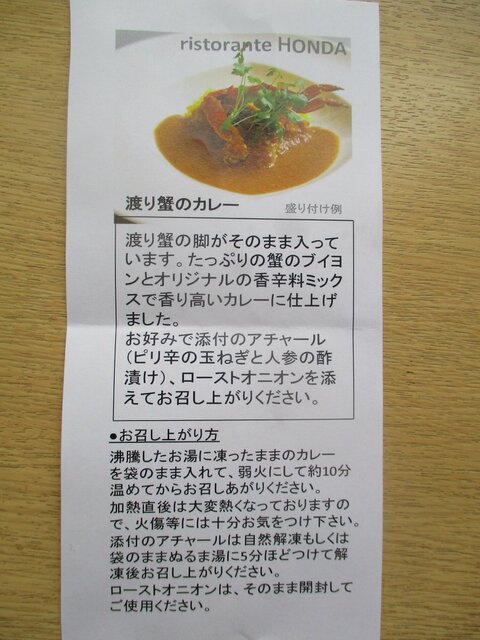 ristorante HONDA
渡り蟹のカレー
盛り付け例
渡り蟹の脚がそのまま入って
います。たっぷりの蟹のブイヨ
ンとオリジナルの香辛料ミック
スで香り高いカレーに仕上げ
ました。
お好みで添付のアチャール
(ピリ辛の玉ねぎと人参の酢
漬け)、ローストオニオンを添
えてお召し上がりください。
●お召し上がり方
沸騰したお湯に凍ったままのカレー
を袋のまま入れて、弱火にして約10分
温めてからお召しあがりください。
加熱直後は大変熱くなっておりますの
で、火傷等には十分お気をつけ下さい。
添付のアチャールは自然解凍もしくは
袋のままぬるま湯に5分ほどつけて解
凍後お召し上がりください。
ローストオニオンは、そのまま開封して
ご使用ください。